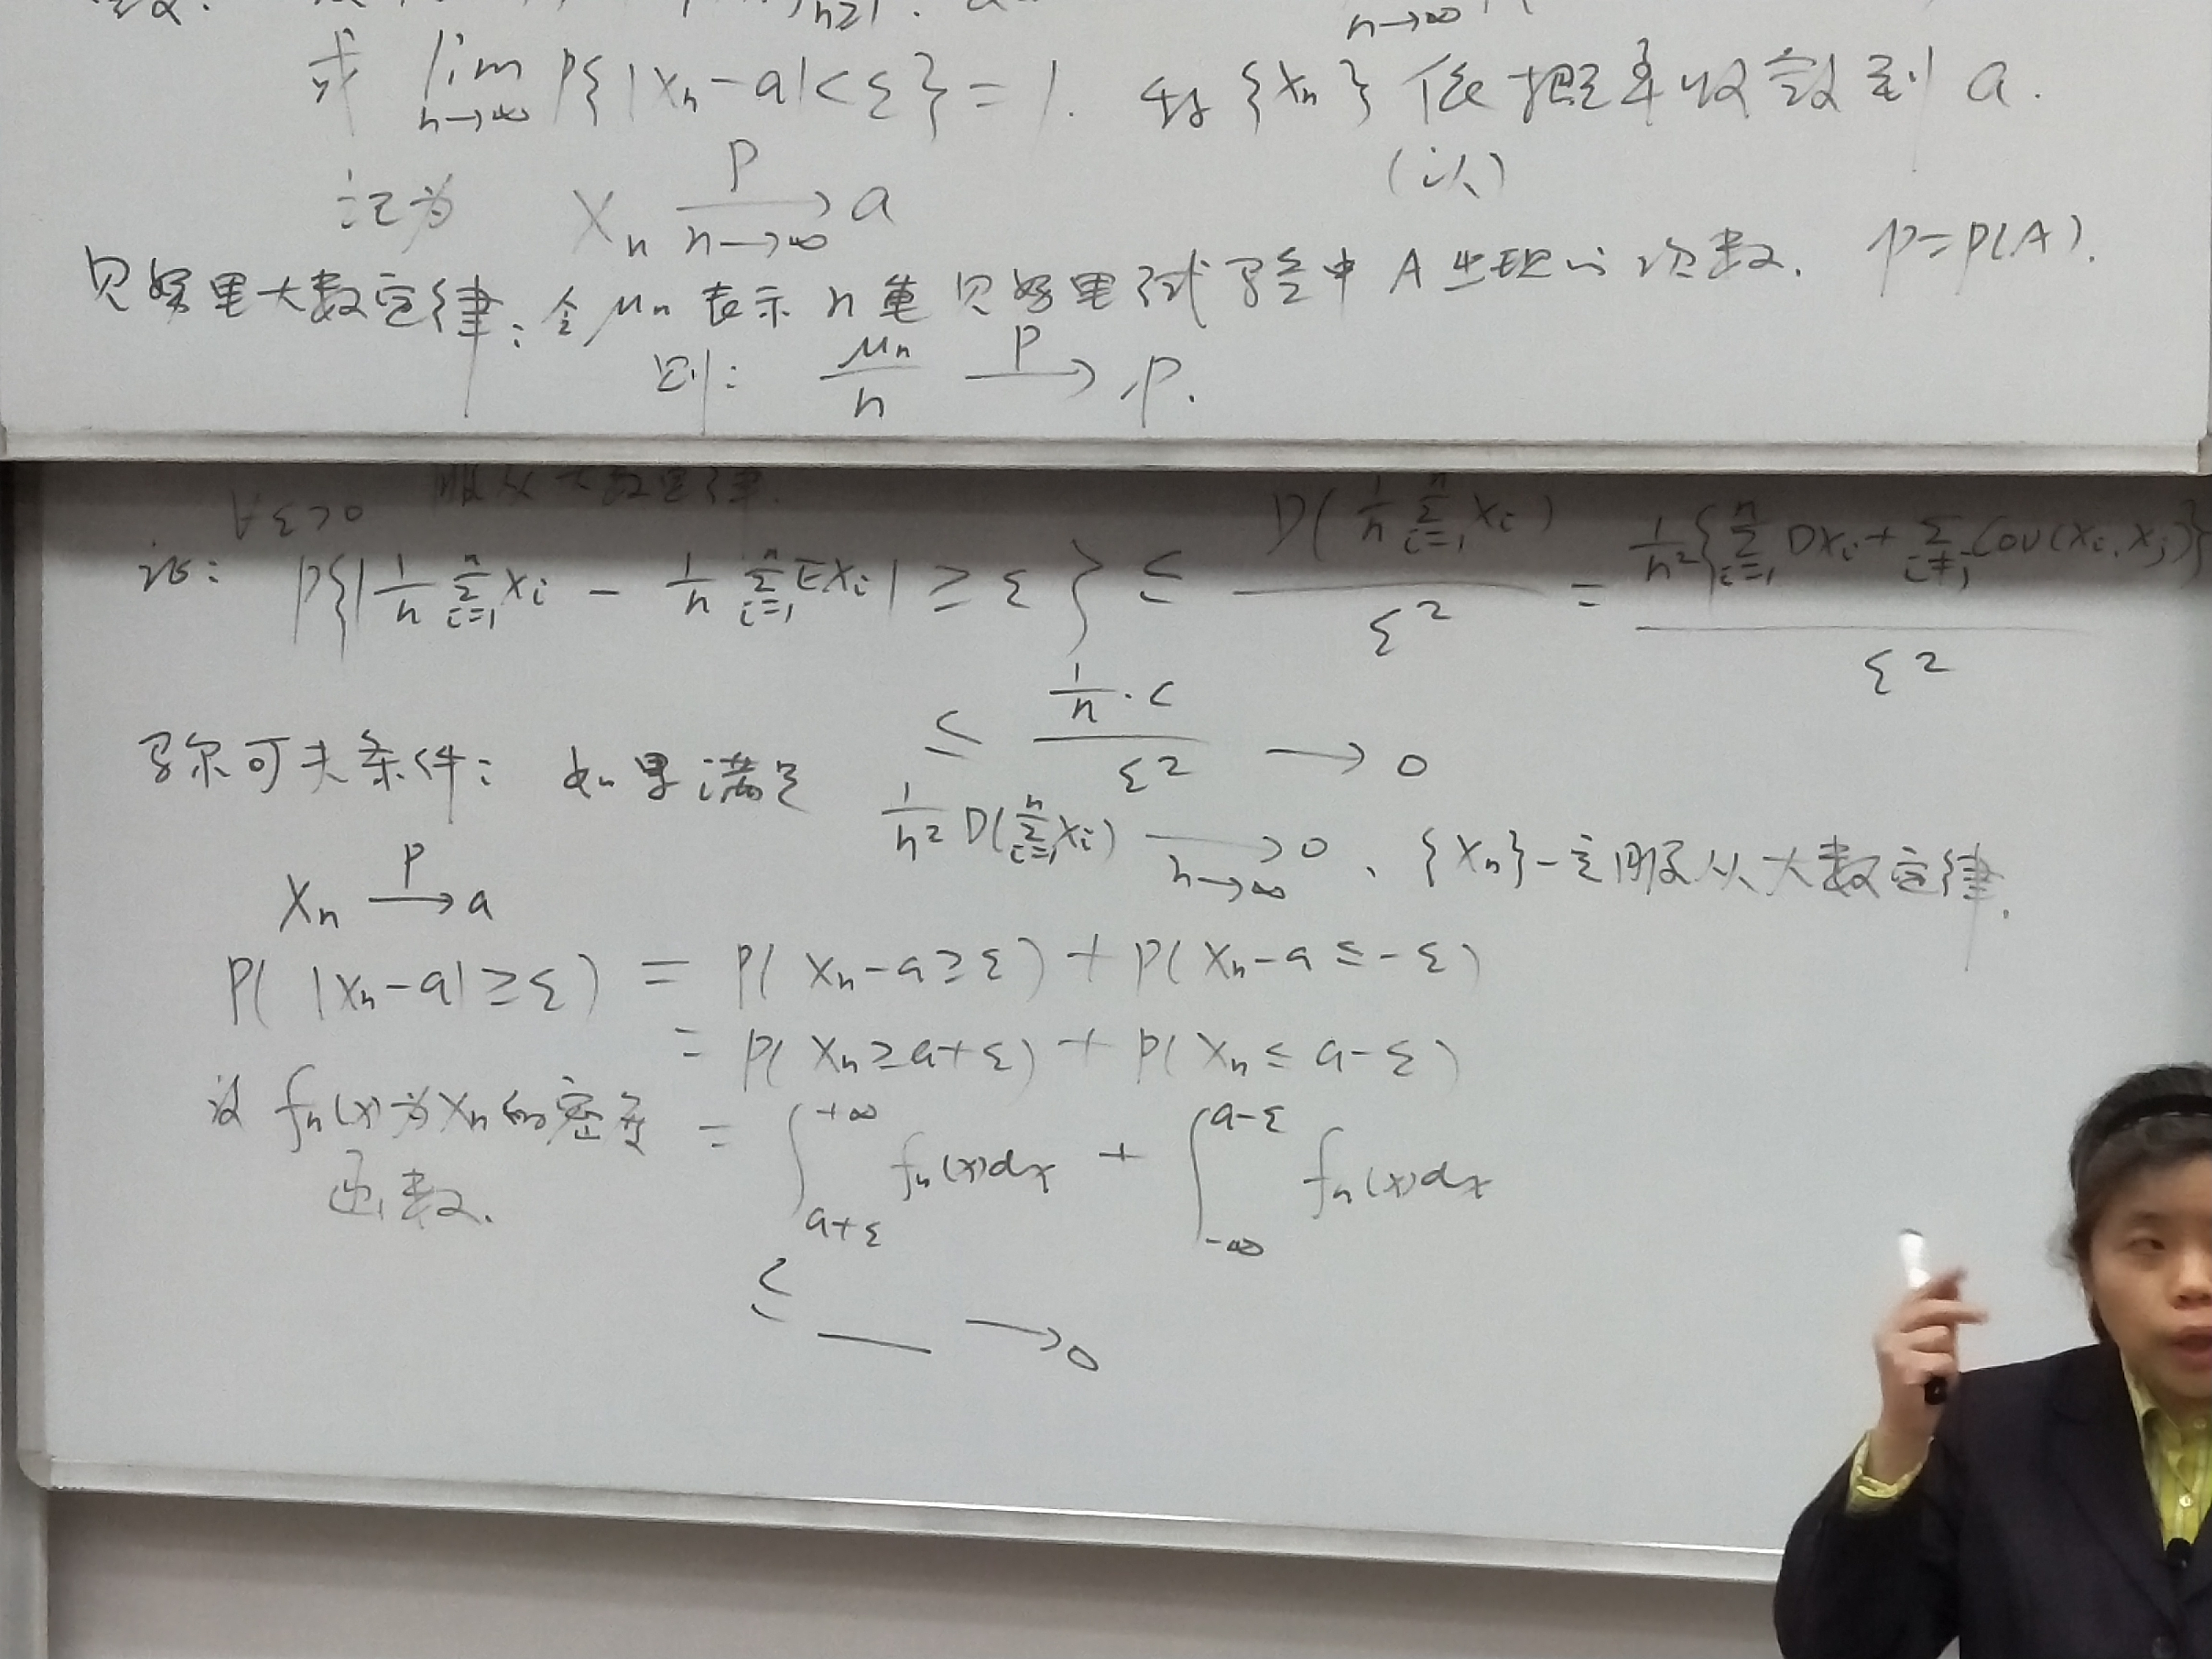 n≥1.
n→∞
或 lim n→∞ P{|Xn-a|<ε}=1. 称{Xn}依概率收敛到a.
(以)
记为 Xn P→ n→∞ a
贝努里大数定律:令μn表示n重贝努里试验中A出现的次数. p=P(A).
则: μn/n P→ p.
∀ε>0 服从大数定律.
证: P{|1/n Σ_{i=1}^n Xi - 1/n Σ_{i=1}^n EXi| ≥ ε} ≤ D(1/n Σ_{i=1}^n Xi)/ε² = 1/n²{Σ_{i=1}^n DXi + Σ_{i≠j} Cov(Xi,Xj)}/ε²
≤ (1/n·c)/ε² → 0
马尔可夫条件: 如果满足 1/n² D(Σ_{i=1}^n Xi) → n→∞ 0、{Xn}一定服从大数定律.
Xn P→ a
P(|Xn-a|≥ε) = P(Xn-a≥ε)+P(Xn-a≤-ε)
= P(Xn≥a+ε)+P(Xn≤a-ε)
设fn(x)为Xn的密度 = ∫_{a+ε}^{+∞} fn(x)dx + ∫_{-∞}^{a-ε} fn(x)dx
函数.
≤ __ → 0